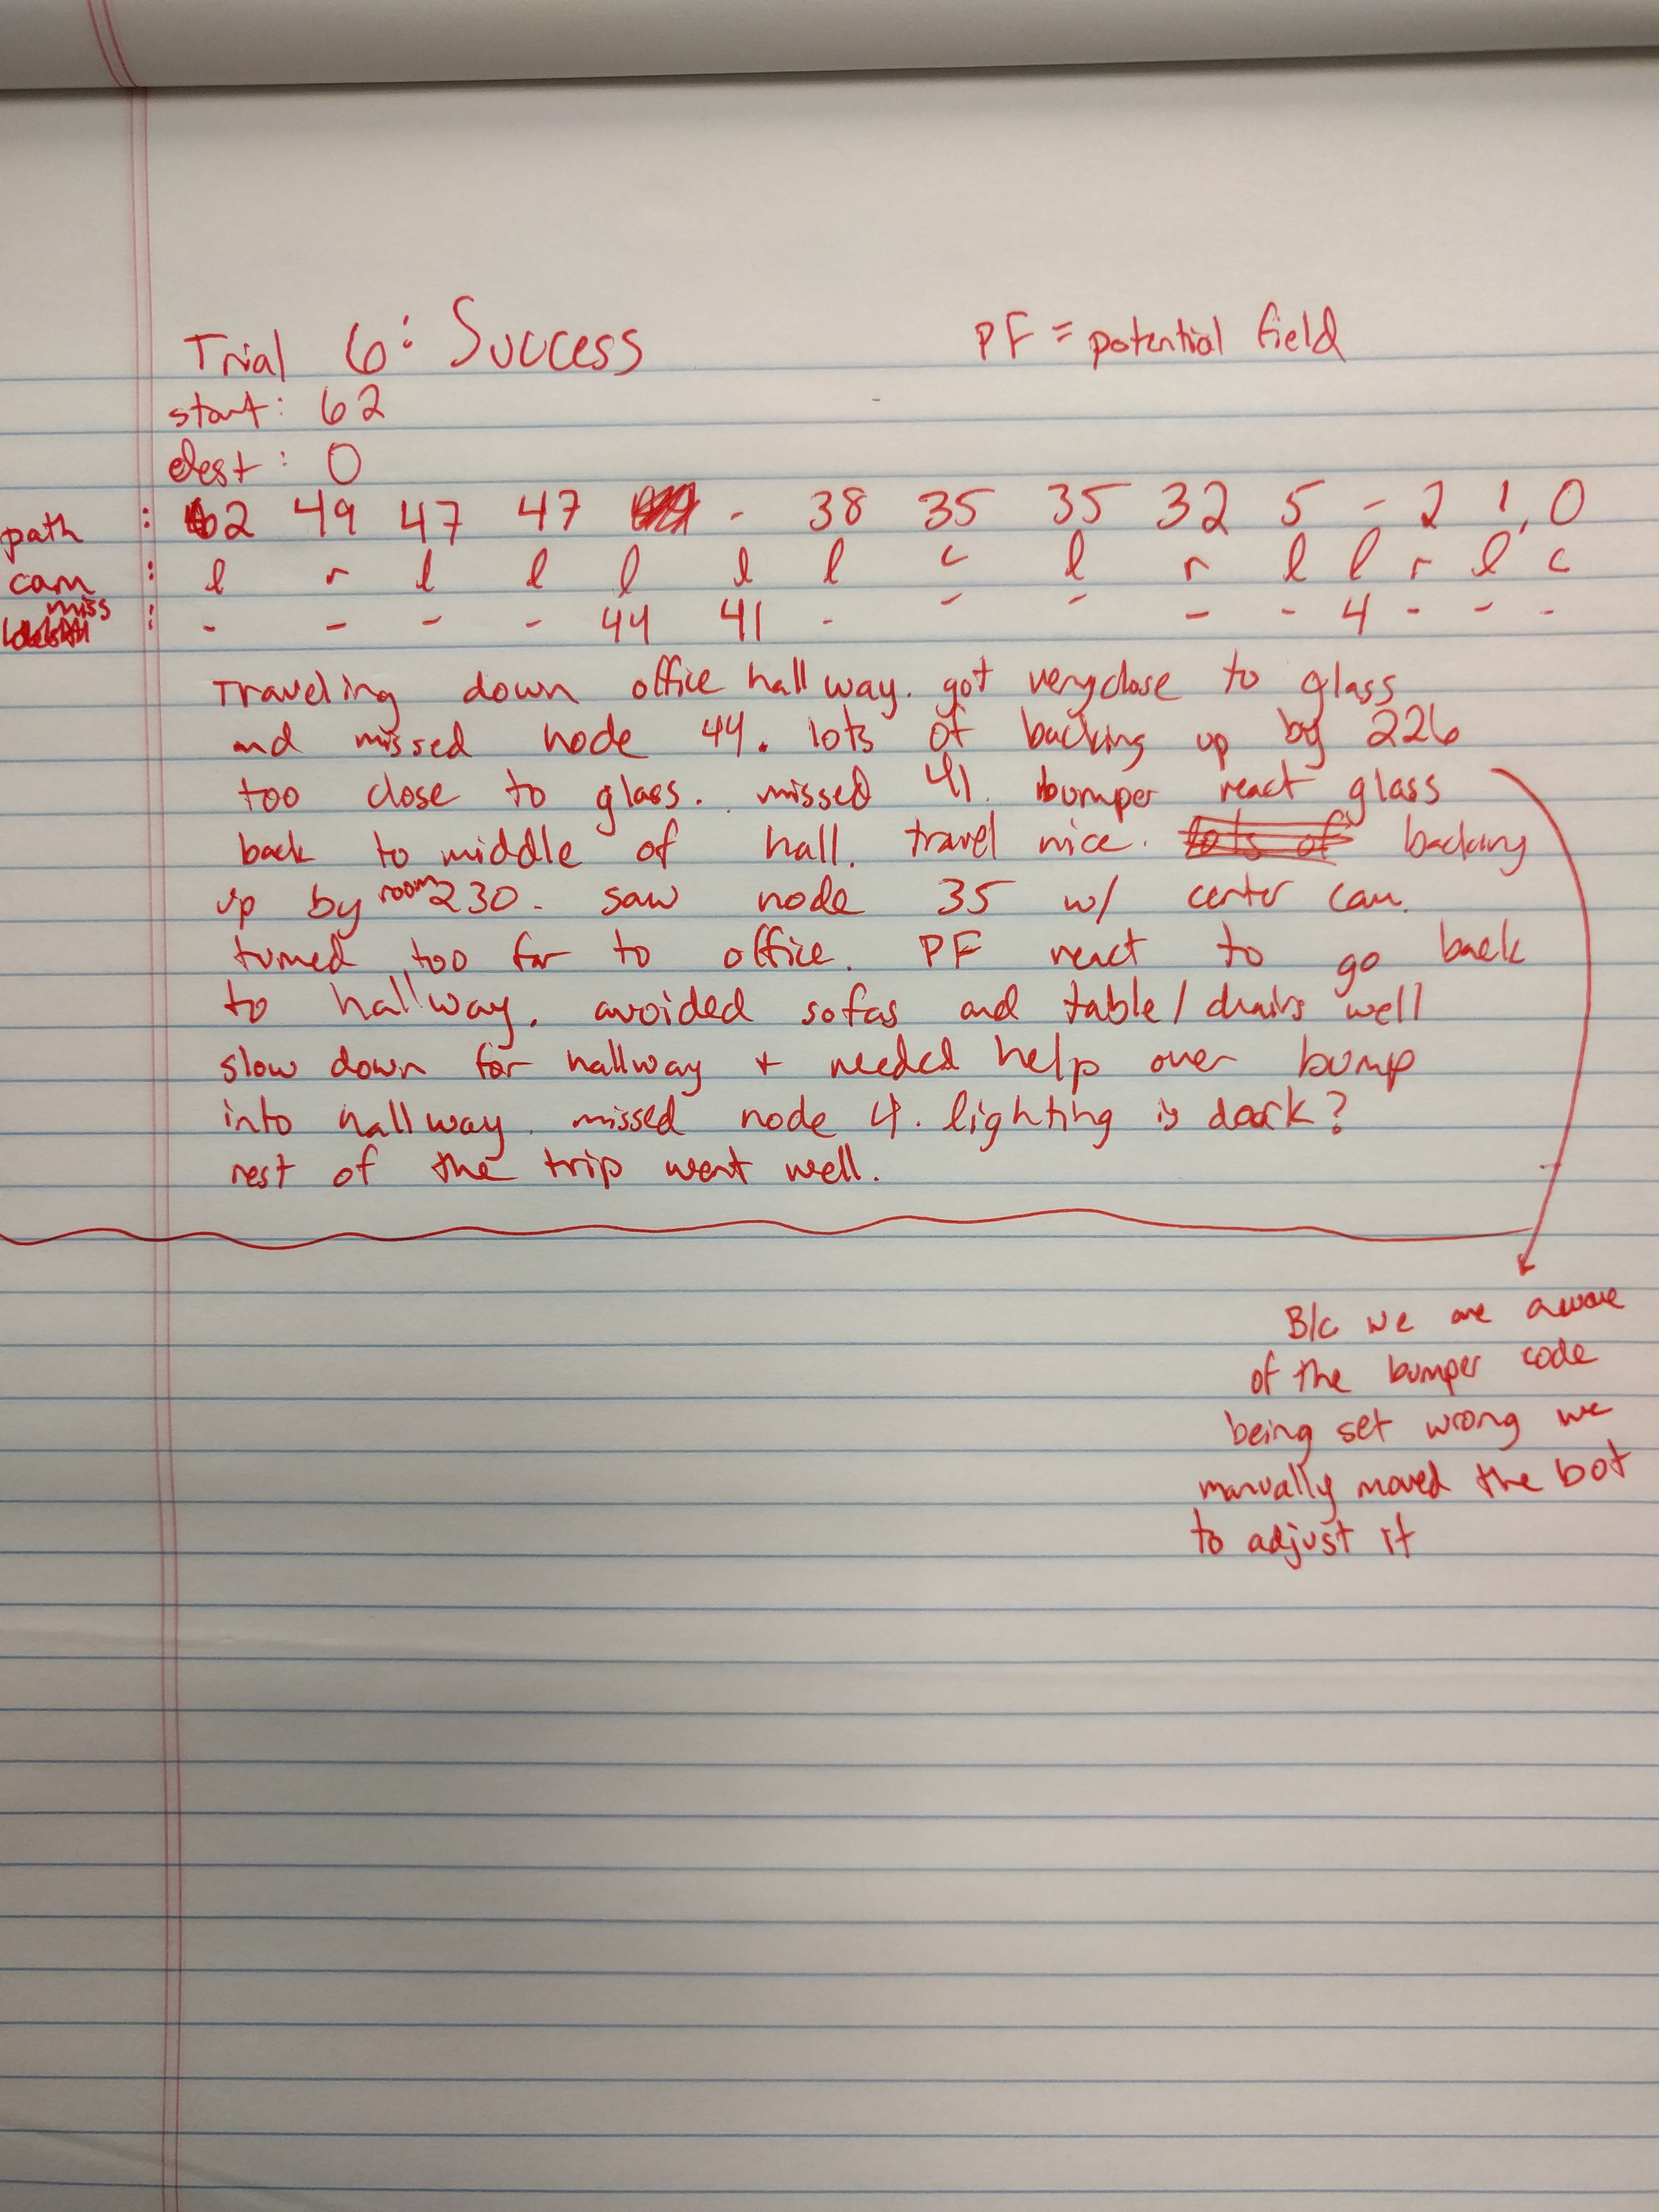 Trial 6: Success
PF = potential field
start: 62
dest: 0
path : 62 49 47 47 - 38 35 35 32 5 - 2 1, 0
cam : l r l l l l l c l r l l r l c
miss : - - - - 44 41 - - - - - 4 - - -
Traveling down office hallway. got very close to glass
and missed node 44. lots of backing up by 226
too close to glass. missed 41. bumper react glass
back to middle of hall. travel nice. lots of backing
up by room 230. saw node 35 w/ center cam.
turned too far to office. PF react to go back
to hallway. avoided sofas and table/chairs well
slow down for hallway + needed help over bump
into hallway. missed node 4. lighting is dark?
rest of the trip went well.
B/c we are aware
of the bumper code
being set wrong we
manually moved the bot
to adjust it